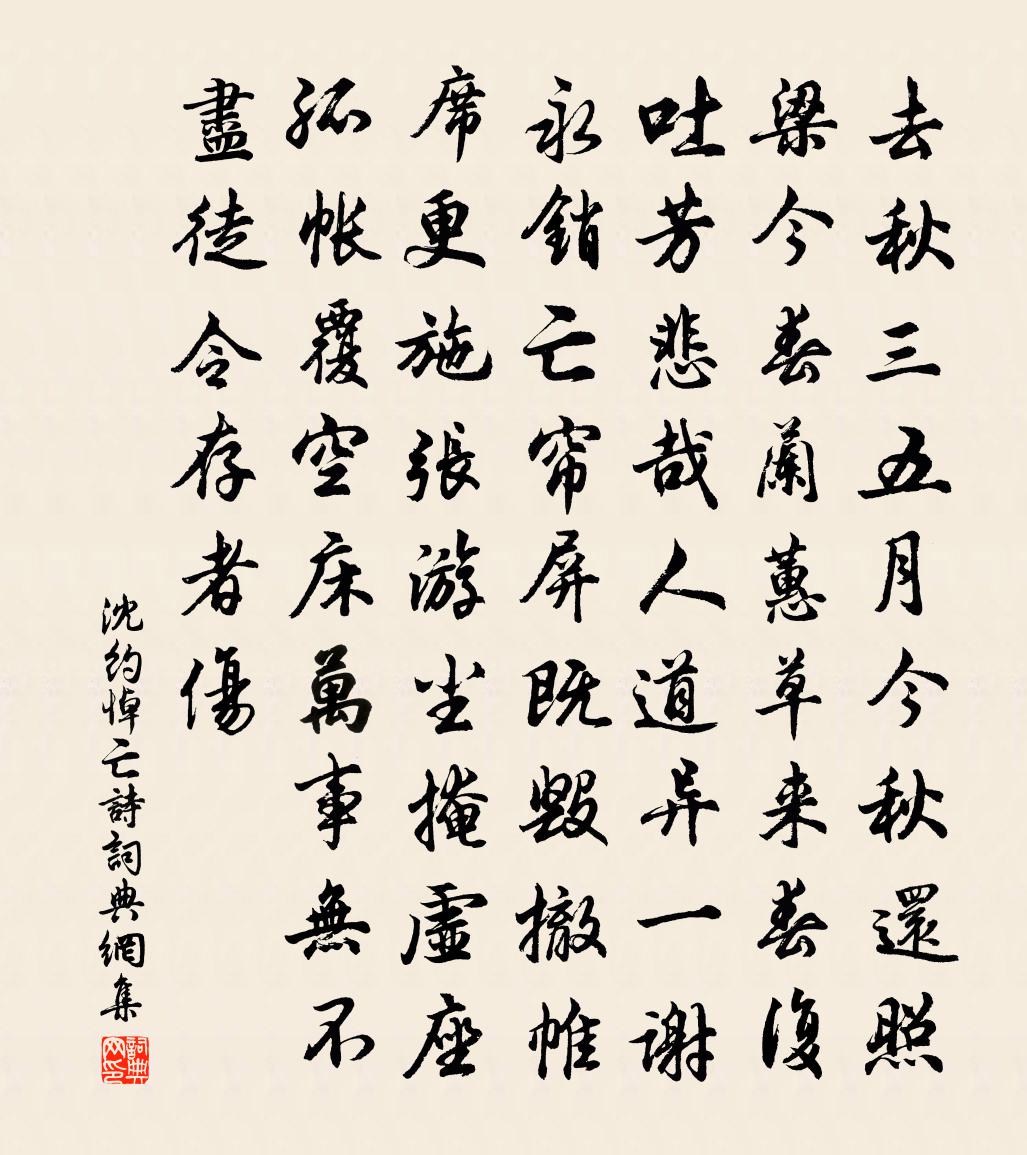 去秋三五月今秋還照
梁今春蘭蕙草来春復
吐芳悲哉人道异一謝
永銷亡帘屏既毀撤帷
席更施張游尘掩虛座
孤帐覆空床萬事無不
盡徒令存者傷
沈約悼亡詩詞典網集
詞典网印